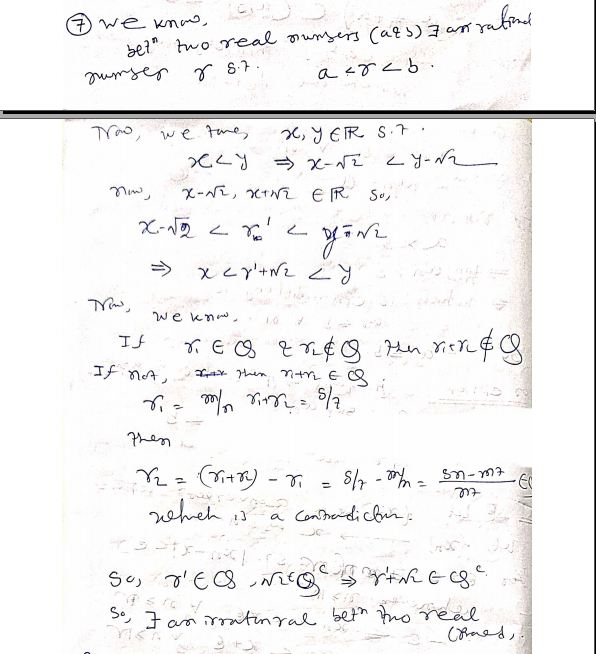 ⑦ We know,
betⁿ two real numbers (a & b) ∃ an rational
number r s.t. a < r < b.
Now, we take, x, y ∈ ℝ s.t.
x < y ⇒ x-√2 < y-√2
Now, x-√2, x+√2 ∈ ℝ so,
x-√2 < r' < y-√2
⇒ x < r'+√2 < y
Now, we know.
If r₁ ∈ Q & r₂ ∉ Q then r₁+r₂ ∉ Q
If not, then r₁+r₂ ∈ Q
r₁ = m/n r₁+r₂ = s/t
then
r₂ = (r₁+r₂) - r₁ = s/t - m/n = sn-mt/nt ∈
which is a contradiction.
So, r' ∈ Q, √2 ∈ Qᶜ ⇒ r'+√2 ∈ Qᶜ
So, ∃ an irrational betⁿ two real
(Proved.